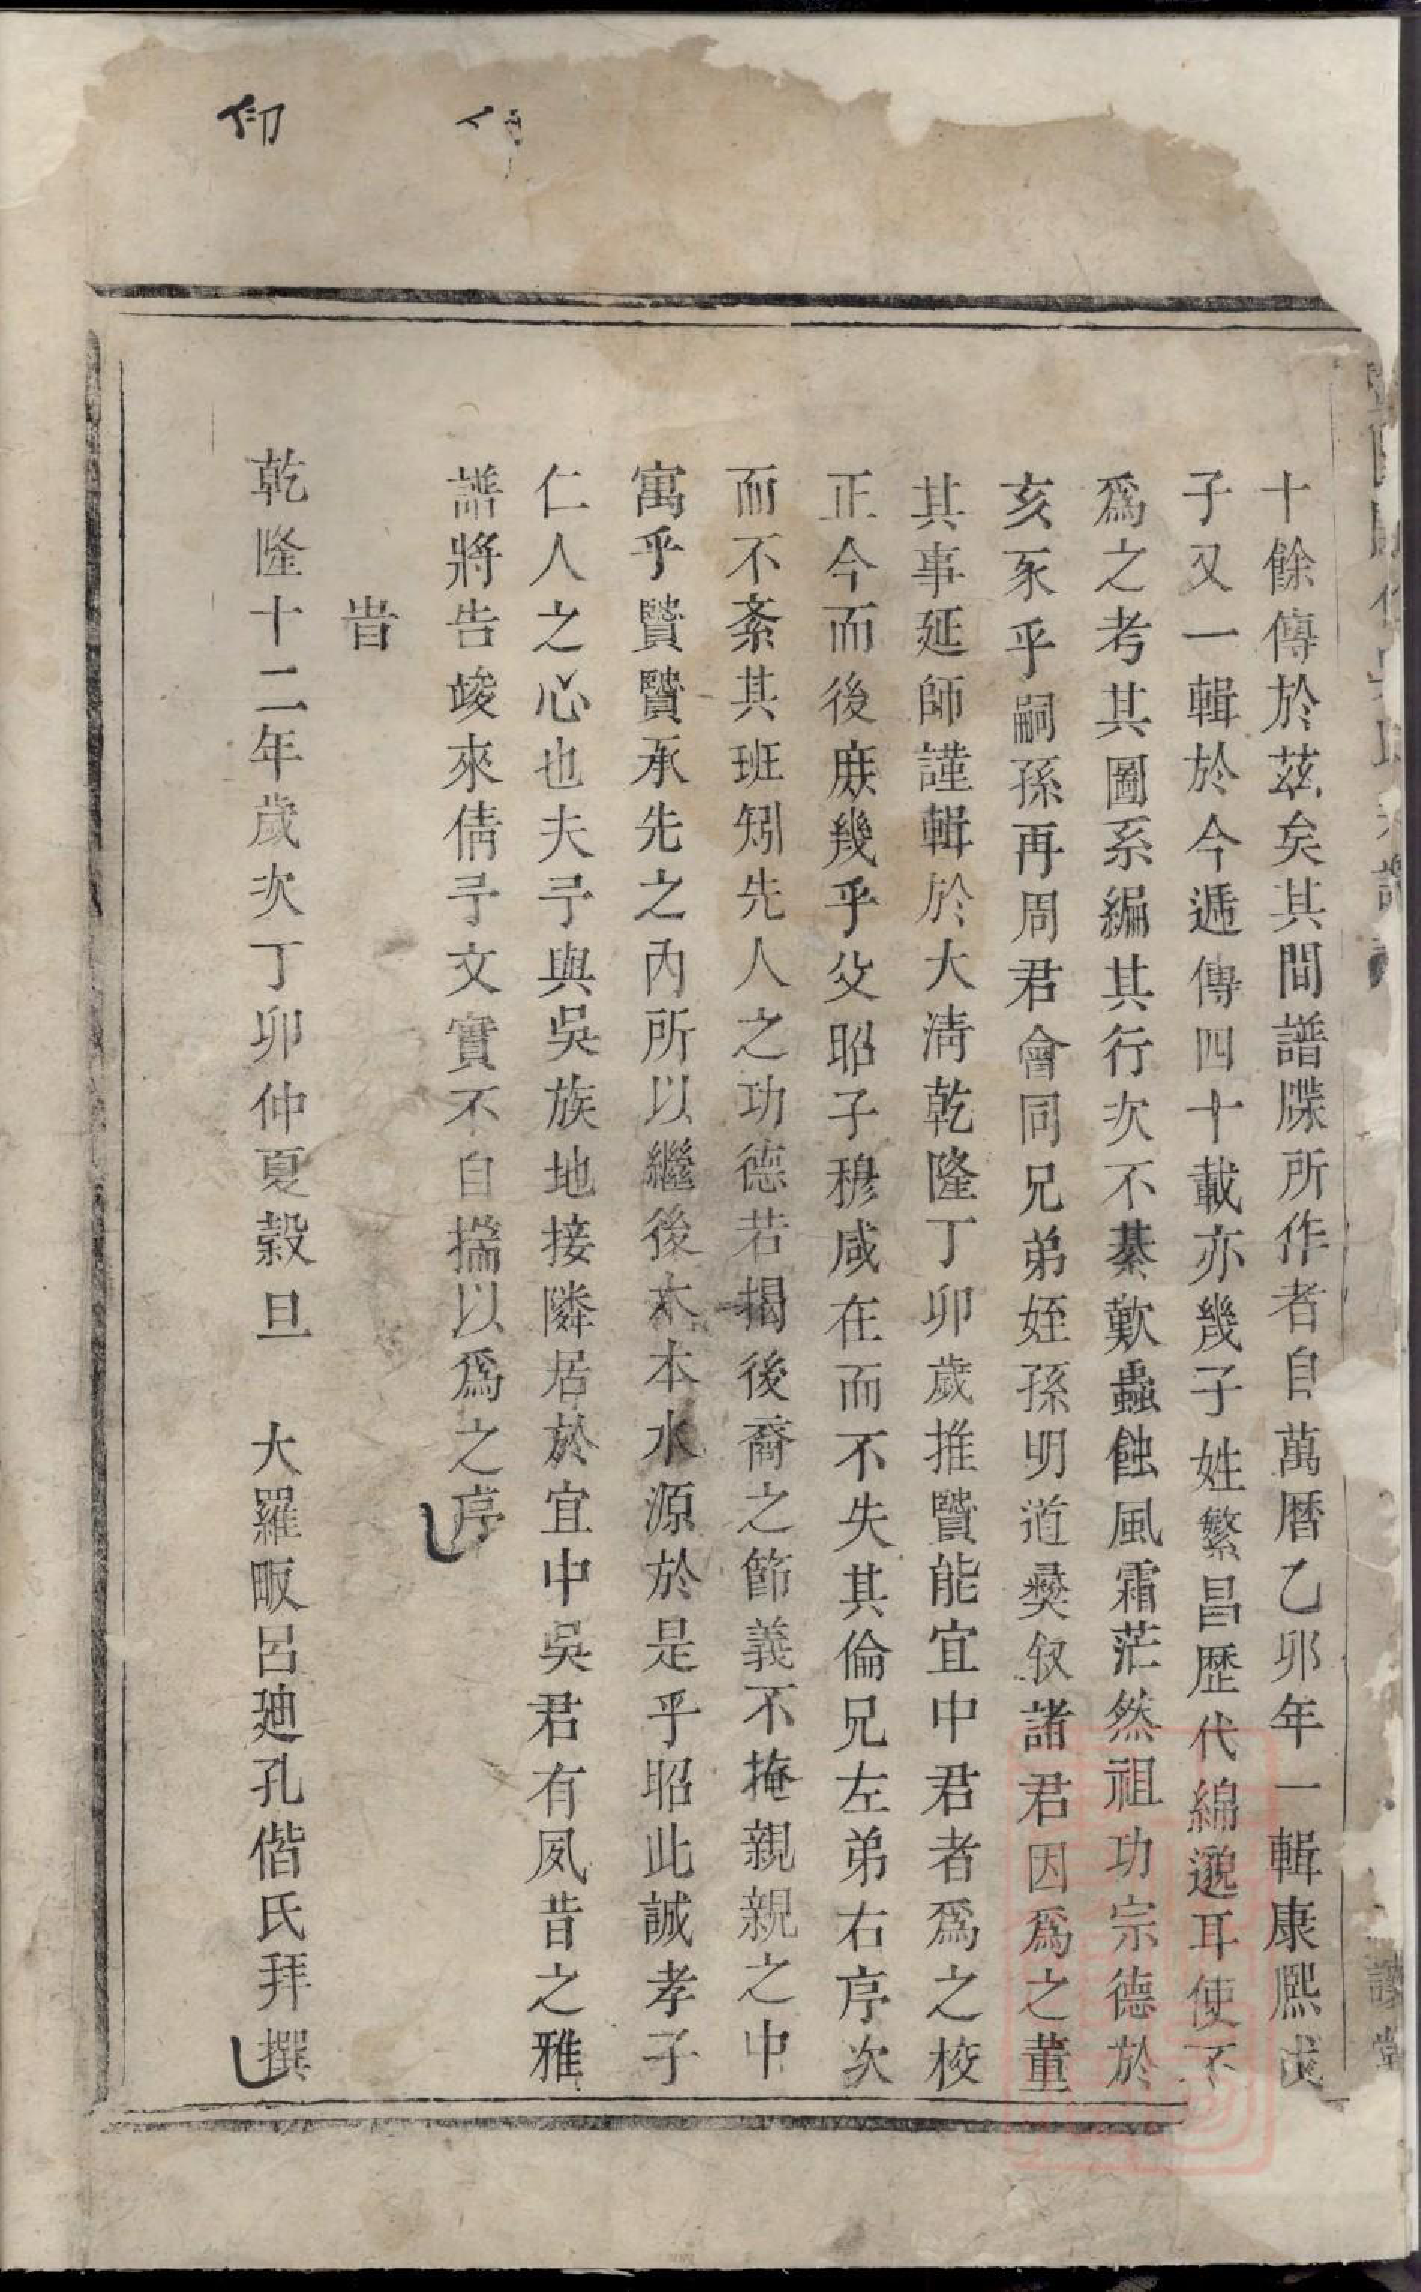 十餘傳於茲矣其間譜牒所作者自萬曆乙卯年一輯康熙戊
子又一輯於今遞傳四十載亦幾子姓繁昌歷代綿邈耳使不
爲之考其圖系編其行次不綦歎蟲蝕風霜茫然祖功宗德於
亥豕乎嗣孫再周君會同兄弟姪孫明道彛敘諸君因爲之董
其事延師謹輯於大清乾隆丁卯歲推賢能宜中君者爲之校
正今而後庻幾乎父昭子穆咸在而不失其倫兄左弟右序次
而不紊其班矧先人之功德若揭後裔之節義不掩親親之中
寓乎賢賢承先之內所以繼後木本水源於是乎昭此誠孝子
仁人之心也夫予與吳族地接隣居於宜中吳君有夙昔之雅
譜將告竣來倩予文實不自揣以爲之序
旹
乾隆十二年歲次丁卯仲夏穀旦 大羅畈呂廸孔偕氏拜撰
仰